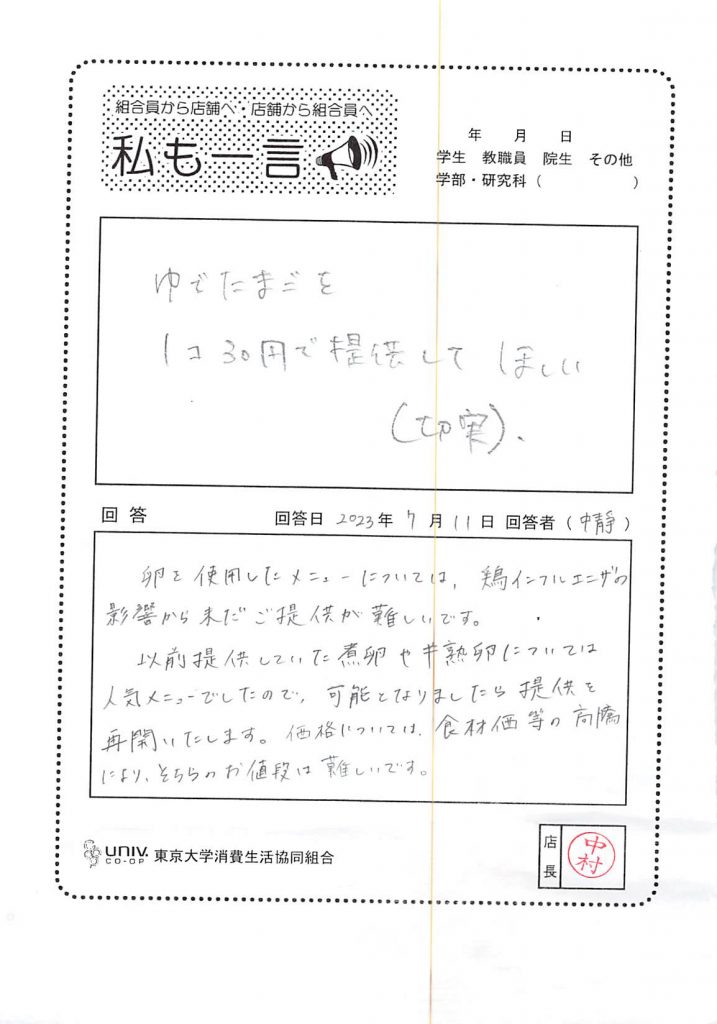 組合員から店舗へ・店舗から組合員へ
私も一言
年 月 日
学生 教職員 院生 その他
学部・研究科( )
ゆでたまごを
1コ30円で提供して ほしい
(切実).
回答 回答日 2023年 7月11日 回答者(中静)
卵を使用したメニューについては、鶏インフルエンザの
影響から未だご提供が難しいです。
以前提供していた煮卵や半熟卵については
人気メニューでしたので、可能となりましたら提供を
再開いたします。価格については、食材価等の高騰
により、そちらのお値段は難しいです。
UNIV.
CO-OP 東京大学消費生活協同組合
店長
中村